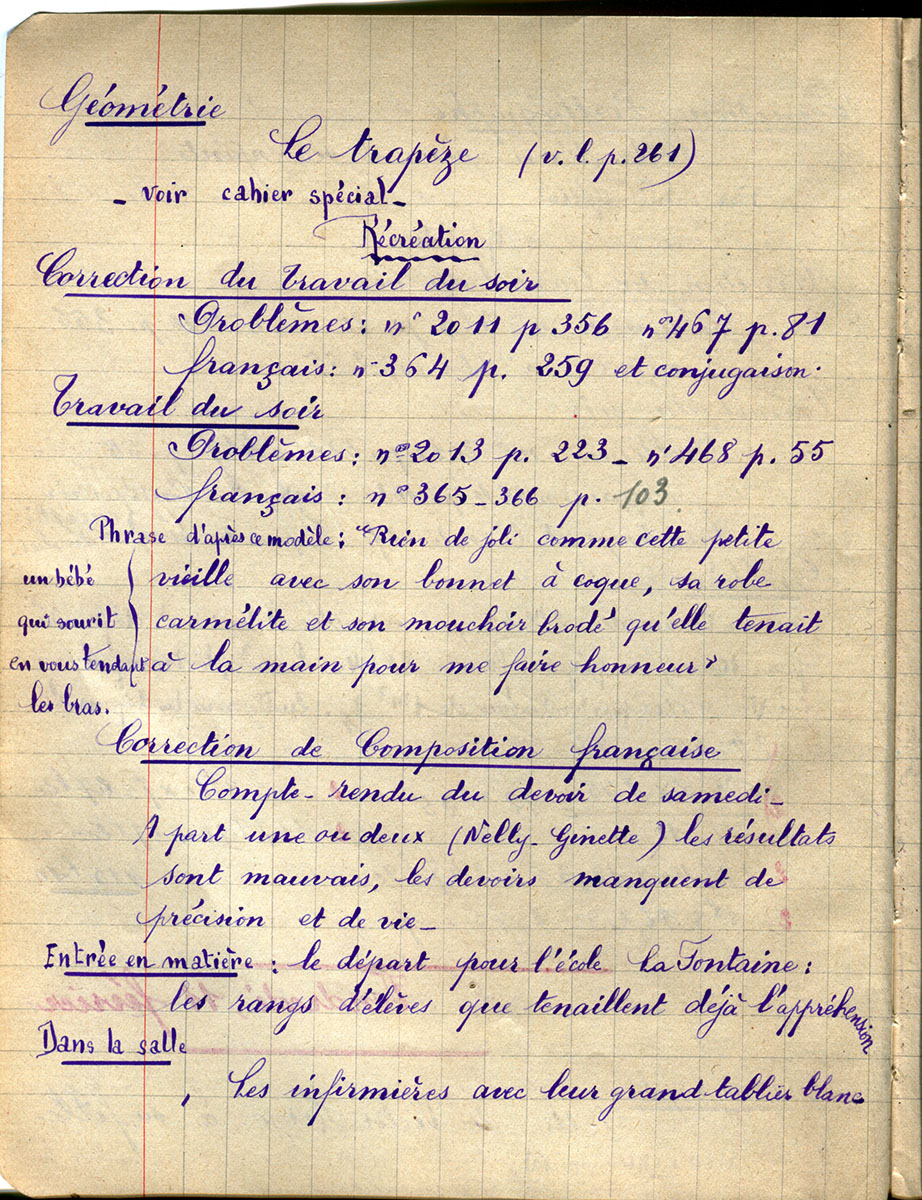 Géométrie
Le trapèze (v. l. p. 261)
- voir cahier spécial -
Récréation
Correction du travail du soir
Problèmes : n° 2011 p 356 n° 467 p. 81
français : n° 364 p. 259 et conjugaison.
Travail du soir
Problèmes : n° 2013 p. 223 - n° 468 p. 55
français : n° 365 - 366 p. 103
Phrase d'après ce modèle : "Rien de joli comme cette petite
vieille avec son bonnet à coque, sa robe
carmélite et son mouchoir brodé qu'elle tenait
à la main pour me faire honneur"
un bébé
qui sourit
en vous tendant
les bras.
Correction de Composition française
Compte-rendu du devoir de samedi -
A part une ou deux (Nelly - Ginette) les résultats
sont mauvais, les devoirs manquent de
précision et de vie -
Entrée en matière : le départ pour l'école La Fontaine :
les rangs d'élèves que tenaillent déjà l'appréhension
Dans la salle
, Les infirmières avec leur grand tablier blanc